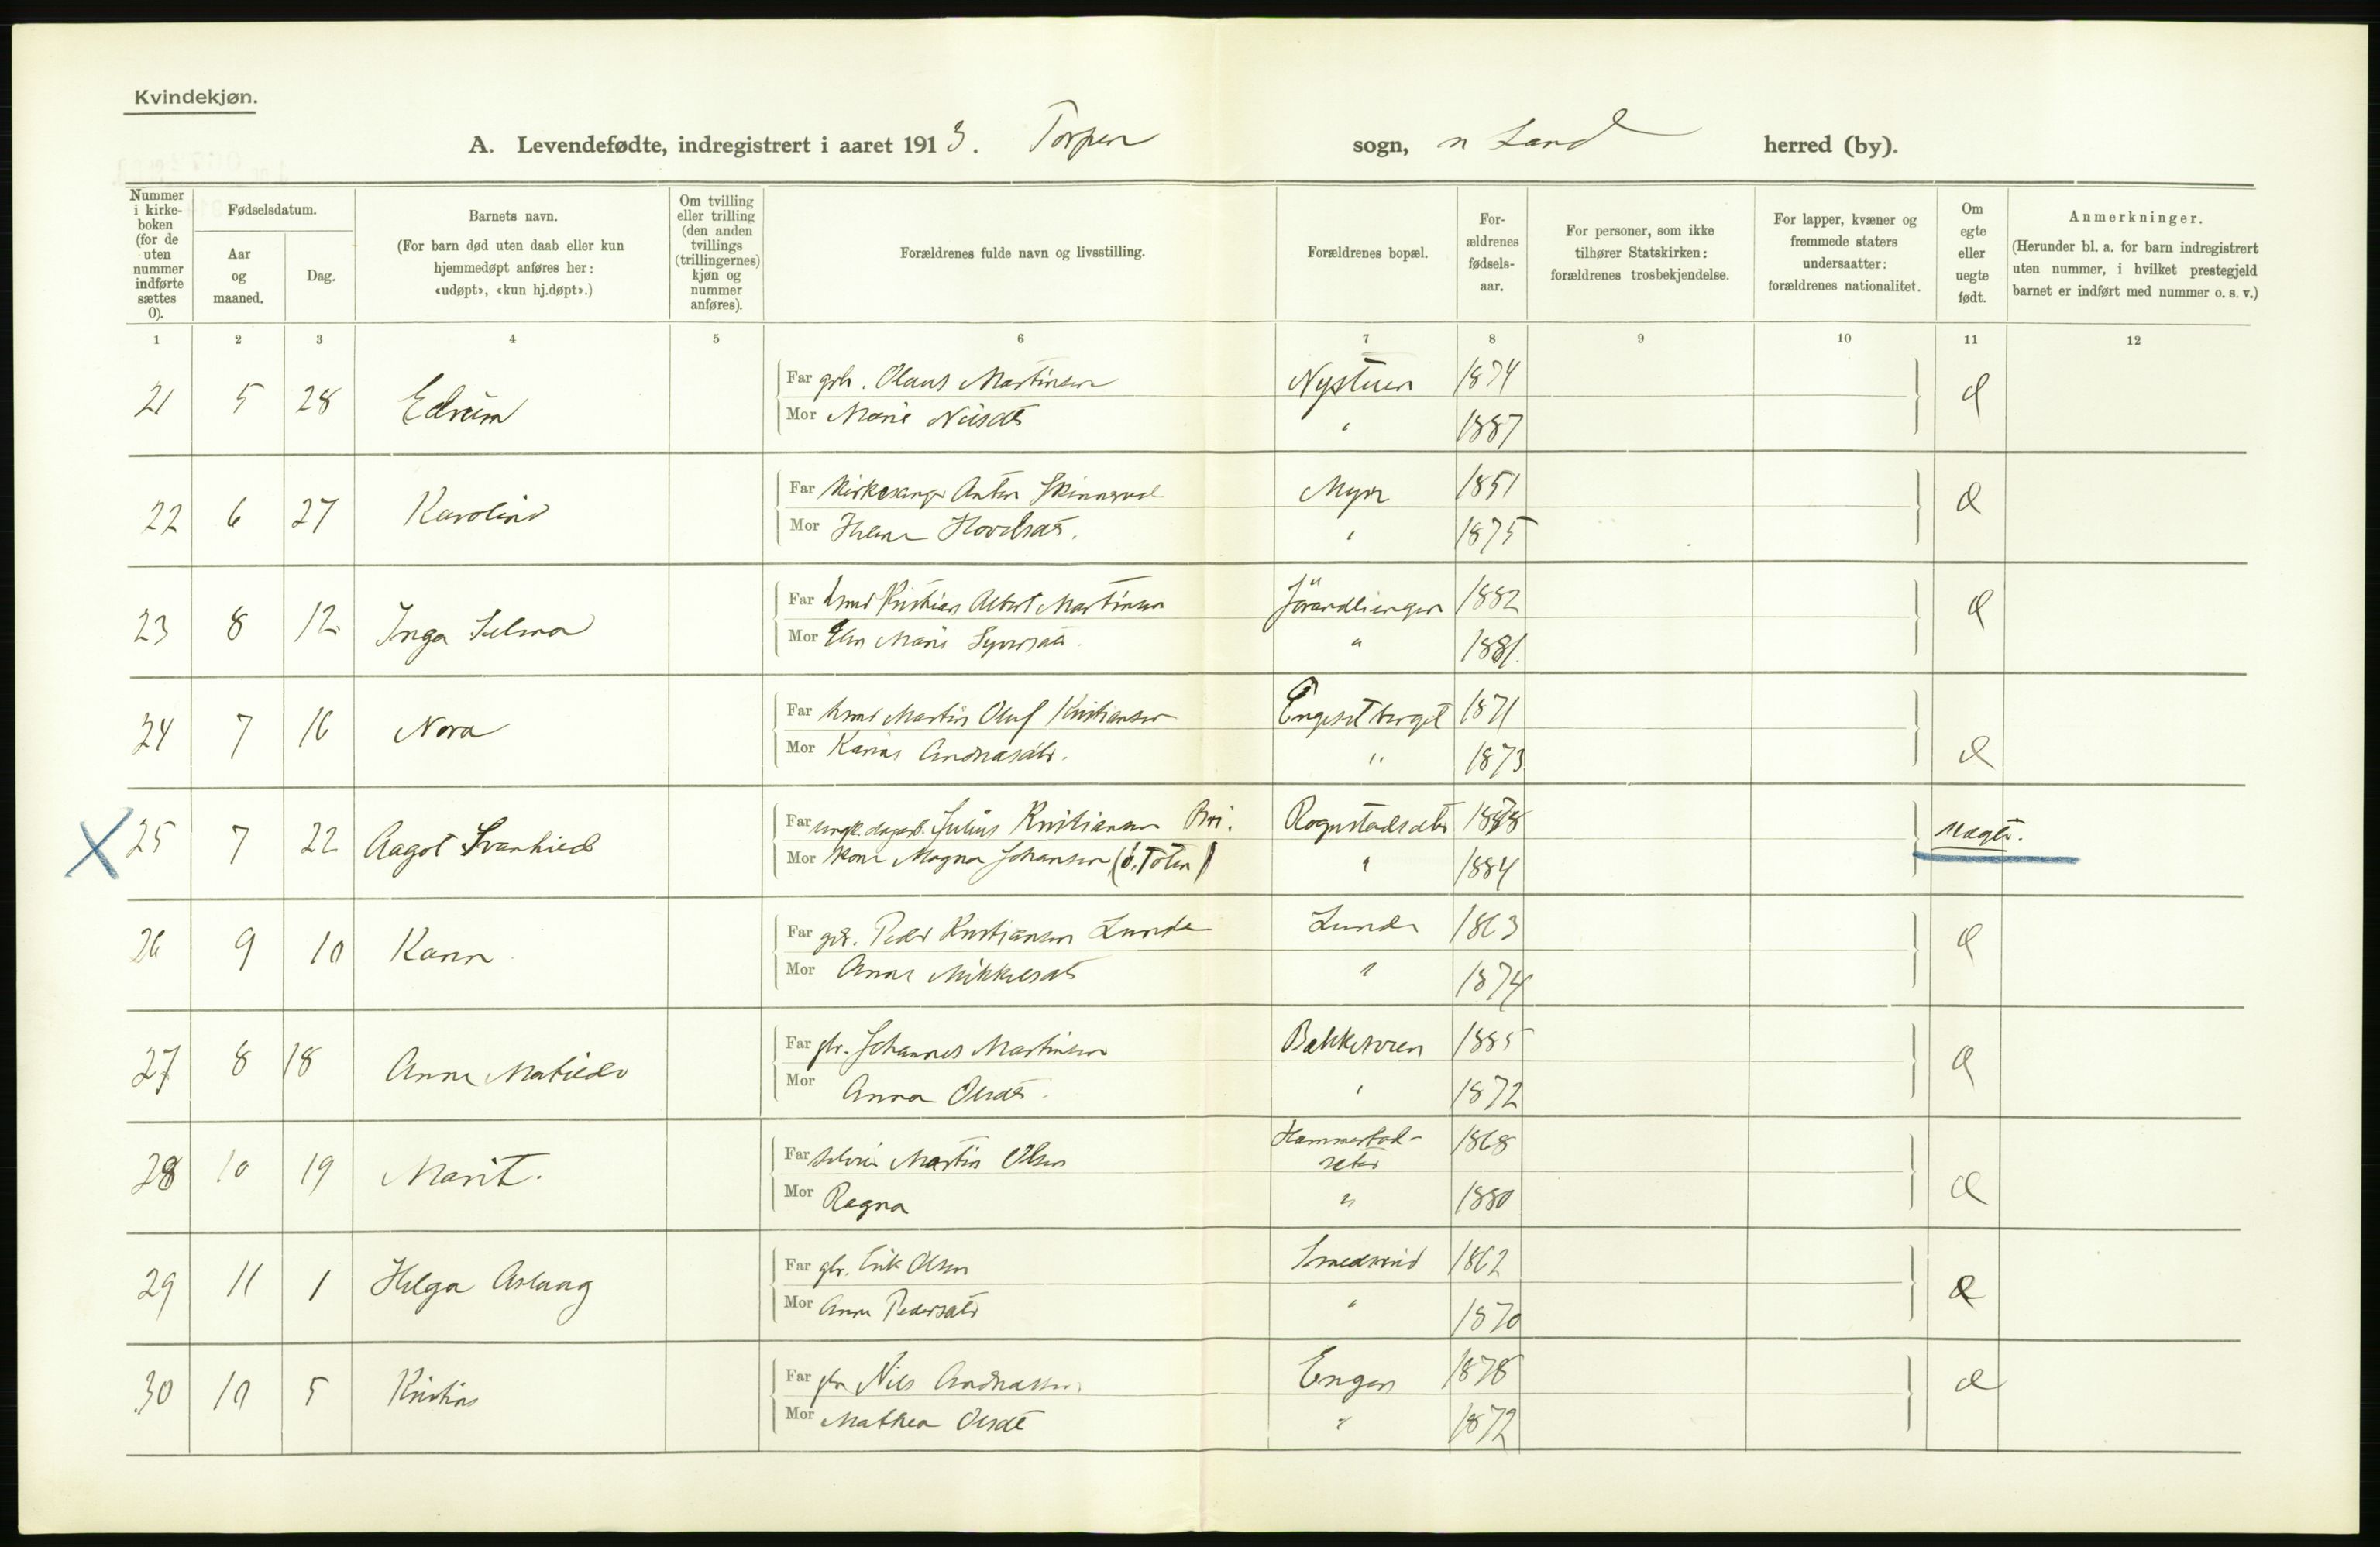 Kvindekjøn.
A. Levendefødte, indregistrert i aaret 1913. Torpen sogn, n Land herred (by).
Nummer i kirke-boken (for de uten nummer indførte sættes 0).
Fødselsdatum.
Aar og maaned.
Dag.
Barnets navn.
(For barn død uten daab eller kun hjemmedøpt anføres her: «udøpt», «kun hj.døpt».)
Om tvilling eller trilling (den anden tvillings (trillingernes) kjøn og nummer anføres).
Forældrenes fulde navn og livsstilling.
Forældrenes bopæl.
For-ældrenes fødsels-aar.
For personer, som ikke tilhører Statskirken: forældrenes trosbekjendelse.
For lapper, kvæner og fremmede staters undersaatter: forældrenes nationalitet.
Om egte eller uegte født.
Anmerkninger.
(Herunder bl. a. for barn indregistrert uten nummer, i hvilket prestegjeld barnet er indført med nummer o. s. v.)
1 2 3 4 5 6 7 8 9 10 11 12
21 5 28 Far Olaus Martinsen Nystuen 1874
Mor Marie Nilsdt " 1887
22 6 27 Karoline Far Kirkesanger Anton Myra 1851
Mor Helene " 1875
23 8 12 Inga Selma Far Kristian Albert Martinsen 1882
Mor Elen Marie Syversdt. " 1881.
24 7 16 Nora Far Martin Oluf Kristiansen Engesetberget 1871
Mor Karine Andreasdt. " 1873
25 7 22 Aagot Svanhild Far Julius Kristiansen Rognstadsæter
Mor Magna Johansen (ö. Toten) " 1884 uægte.
26 9 10 Far Peder Kristiansen Lunde Lunde 1863
Mor Anne Mikkelsdt " 1874
27 8 18 Anna Matilde Far gbr. Johannes Martinsen 1885
Mor Anna Olsdt. " 1872
28 10 19 Marit. Far Martin Olsen Hammerstad-
seter 1868
Mor Ragna " 1880
29 11 1 Helga Aslaug Far gbr. Erik Olsen 1862
Mor Anne Pedersdt " 1870
30 10 5 Kristine Far gbr Nils Andreassen Engen 1878
Mor Mathea Olsdt " 1872